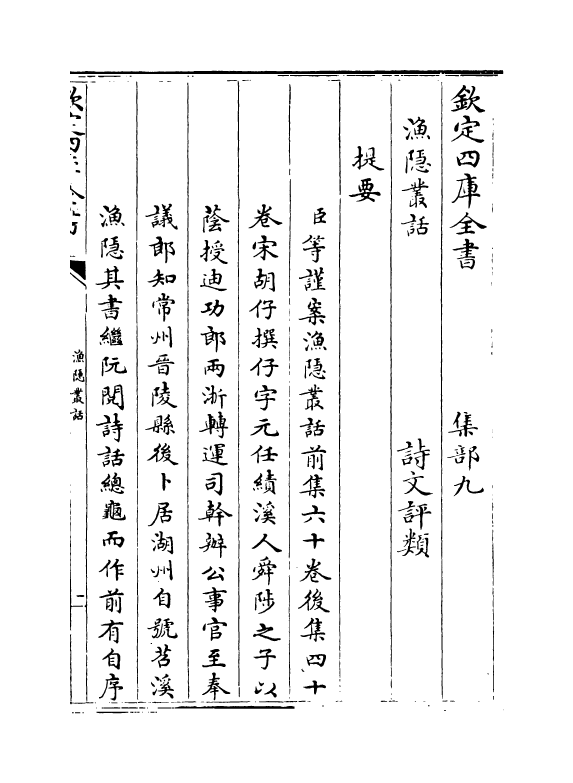 欽定四庫全書　　　集部九
漁隱叢話　　　詩文評類
提要
臣等謹案漁隱叢話前集六十卷後集四十
卷宋胡仔撰仔字元任績溪人舜陟之子以
蔭授迪功郎兩浙轉運司幹辦公事官至奉
議郎知常州晉陵縣後卜居湖州自號苕溪
漁隱其書繼阮閱詩話總龜而作前有自序
漁隱叢話
二